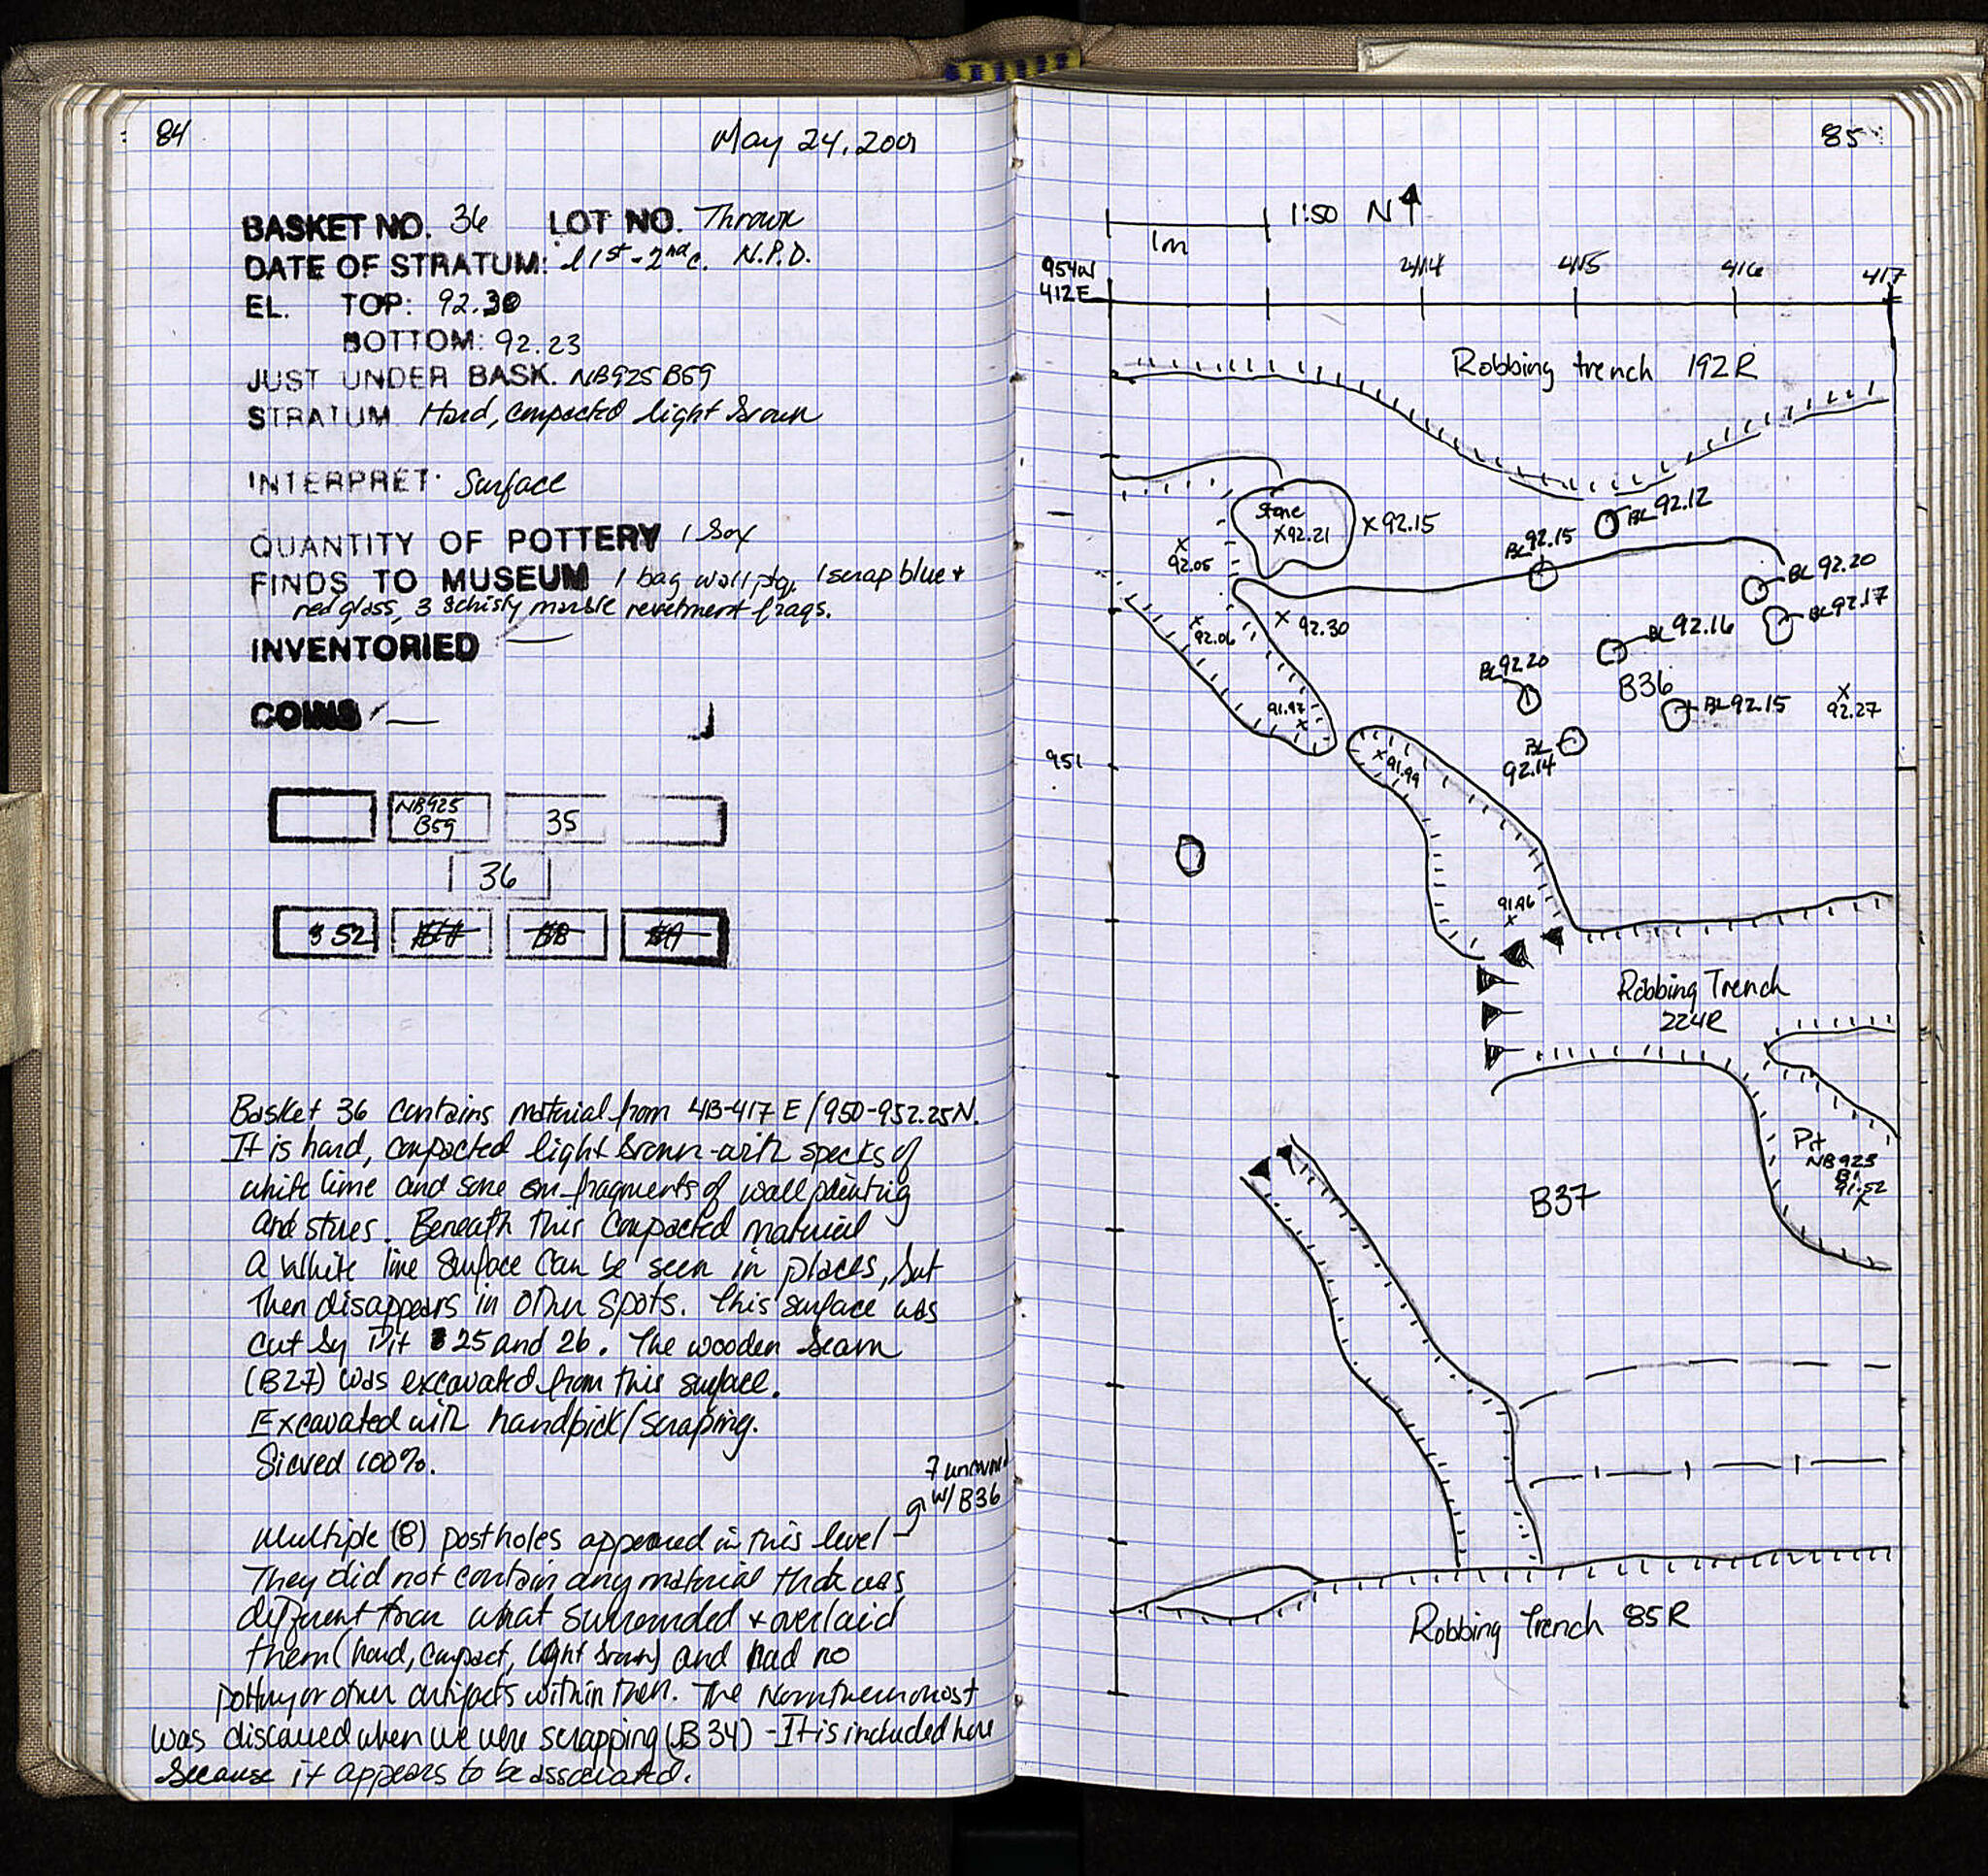 84
May 24, 2001
BASKET NO. 36 LOT NO. Thrown
DATE OF STRATUM: l 1st - 2nd c. N.P.D.
EL. TOP: 92.30
BOTTOM: 92.23
JUST UNDER BASK. NB925 B59
STRATUM Hard, compacted light brown
INTERPRET. Surface
QUANTITY OF POTTERY 1 box
FINDS TO MUSEUM 1 bag wall ptg, 1 scrap blue +
red glass, 3 schisty marble revetment frags.
INVENTORIED —
COINS —
NB925
B59
35
36
52
Basket 36 contains material from 413-417 E / 950-952.25N.
It is hard, compacted light brown with specks of
white lime and some sm. fragments of wall painting
and stones. Beneath this compacted material
a white lime surface can be seen in places, but
then disappears in other spots. This surface was
cut by Pit 25 and 26. The wooden beam
(B27) was excavated from this surface.
Excavated with handpick/scraping.
Sieved 100%.
7 uncovered
w/ B36
Multiple (8) postholes appeared in this level
They did not contain any material that was
different than what surrounded + overlaid
them (hard, compact, light brown) and had no
pottery or other artifacts within them. The Northernmost
was discovered when we were scrapping (B34) - It is included here
because it appears to be associated.
85
1:50 N
1m
954N
412E
414
415
416
417
Robbing trench 192R
Stone
x92.21
x92.15
BL 92.15
BL 92.12
x
92.05
BL 92.20
BL 92.17
x
92.06
x 92.30
BL 92.16
BL 92.20
B36
BL 92.15
x
92.27
91.97
x
x91.99
BL
92.14
951
91.96
x
Robbing Trench
224R
Pit
NB925
B1
91.52
x
B37
Robbing Trench 85R